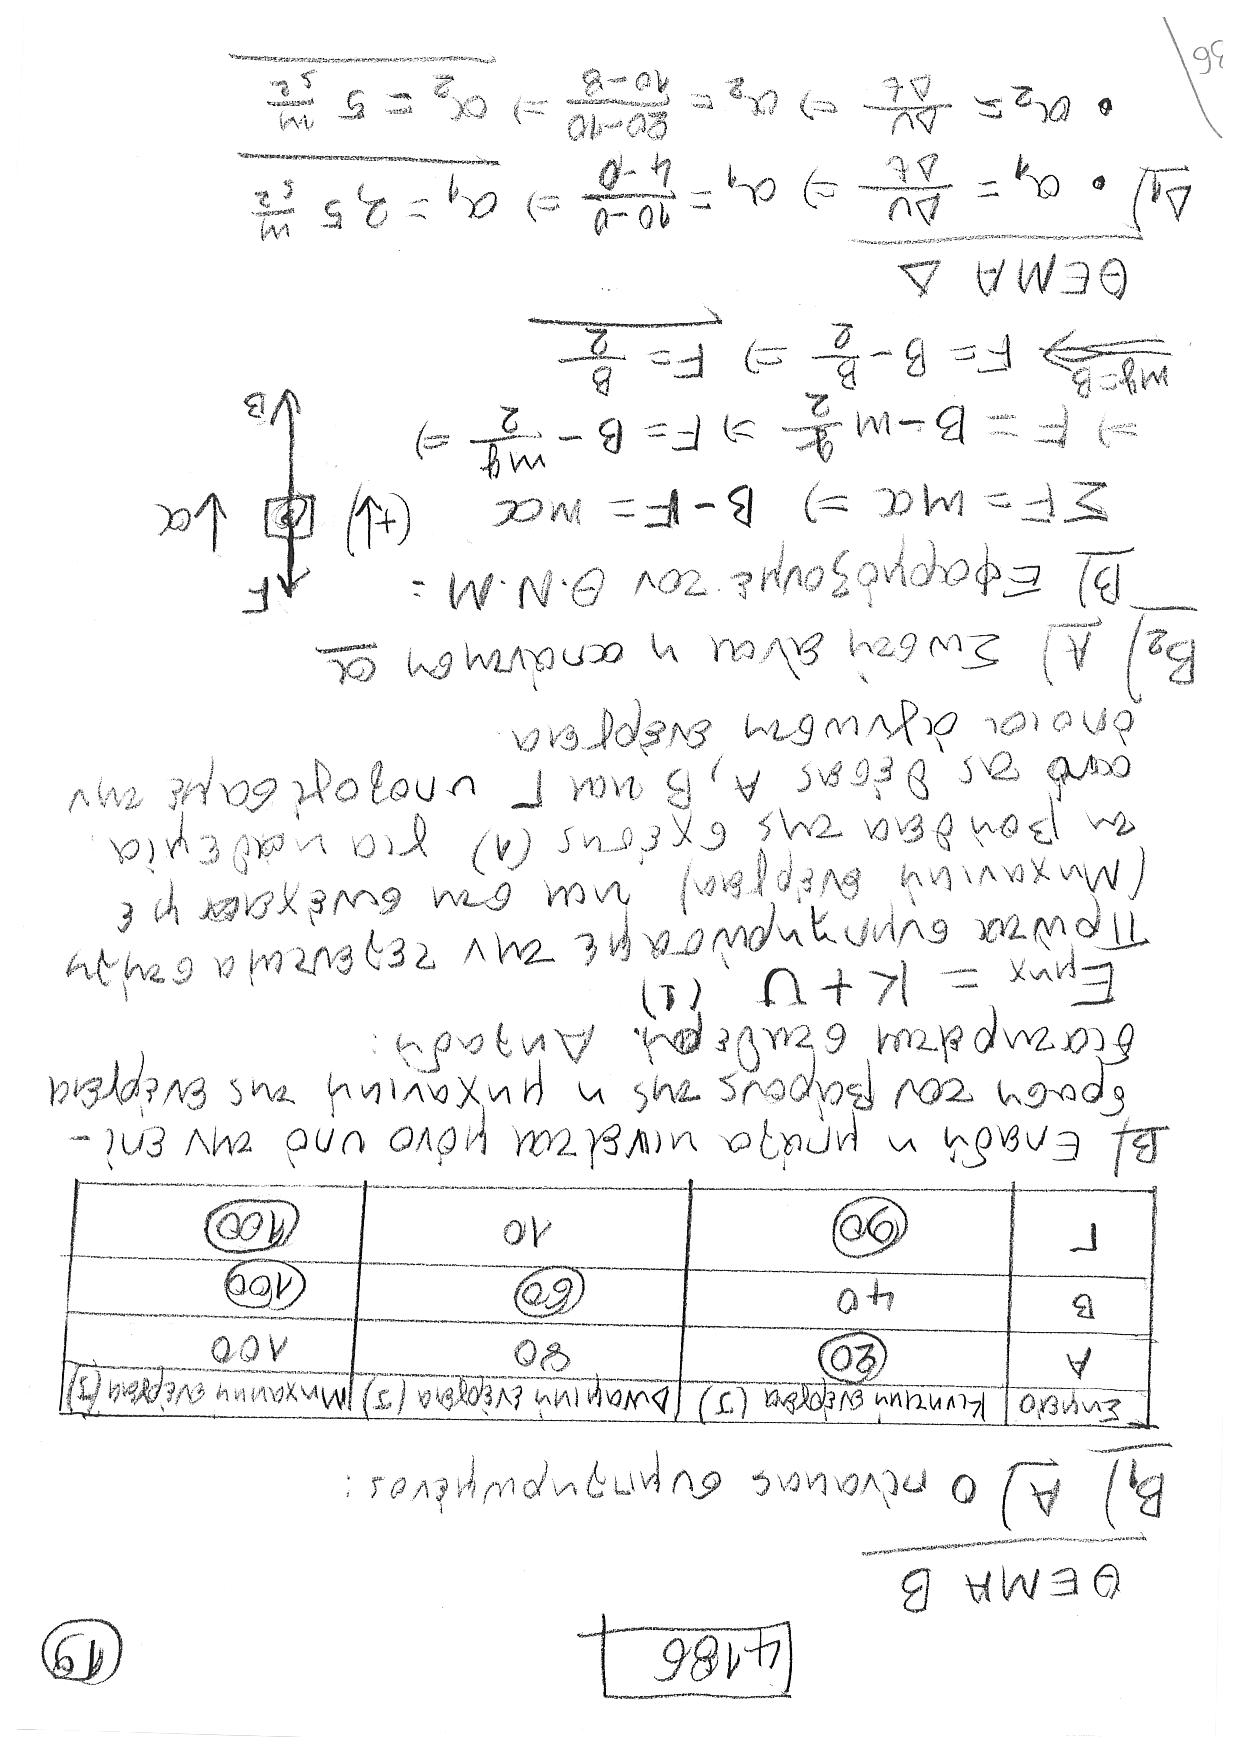 19
4186
ΘΕΜΑ Β
Β1) Α) Ο πίνακας συμπληρωμένος:
Σημείο | Κινητική ενέργεια (J) | Δυναμική ενέργεια (J) | Μηχανική ενέργεια (J)
Α | 20 | 80 | 100
Β | 40 | 60 | 100
Γ | 90 | 10 | 100
Β) Επειδή η μπάλα κινείται μόνο υπό την επί-
δραση του βάρους της η μηχανική της ενέργεια
διατηρείται σταθερή. Δηλαδή:
Εμηχ = Κ + U (1)
Πρώτα συμπληρώσαμε την τελευταία στήλη
(Μηχανική ενέργεια) και στη συνέχεια με
τη βοήθεια της σχέσης (1) για καθεμία
από τις θέσεις Α, Β και Γ υπολογίσαμε την
όποια άγνωστη ενέργεια.
Β2) Α) Σωστή είναι η απάντηση α
Β) Εφαρμόζουμε τον Θ.Ν.Μ:
F
ΣF = mα ⇒ B - F = mα (+↓) ↓α
⇒ F = B - m g/2 ⇒ F = B - mg/2 ⇒
B
mg=B ⇒ F = B - B/2 ⇒ F = B/2
ΘΕΜΑ Δ
Δ1) • α1 = Δυ/Δt ⇒ α1 = 10-0/4-0 ⇒ α1 = 2,5 m/s2
• α2 = Δυ/Δt ⇒ α2 = 20-10/10-8 ⇒ α2 = 5 m/s2
36